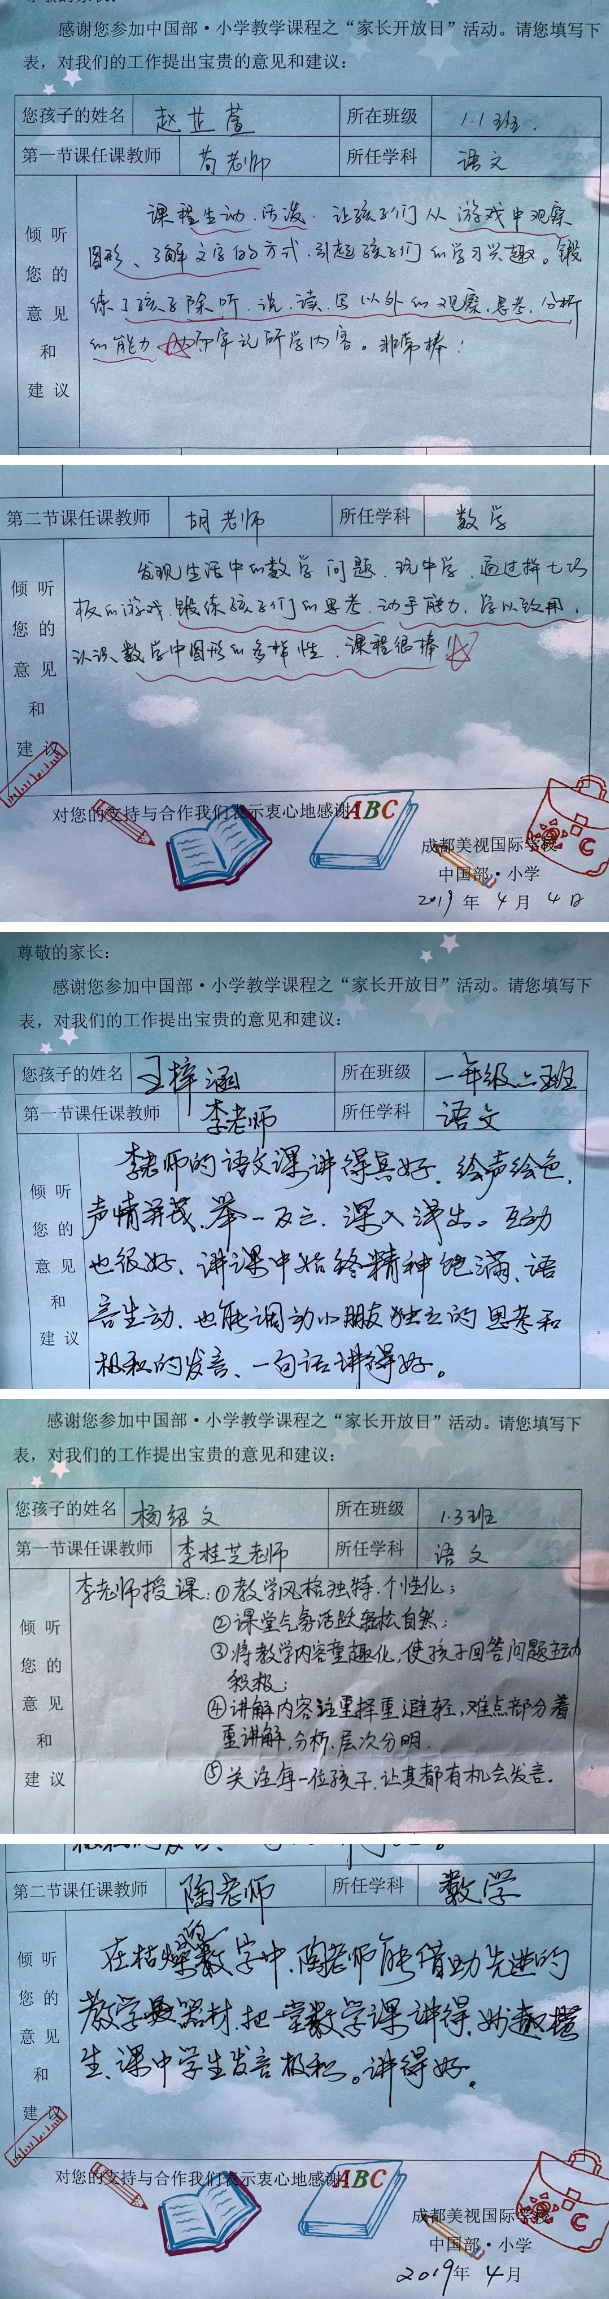 感谢您参加中国部·小学教学课程之“家长开放日”活动。请您填写下
表，对我们的工作提出宝贵的意见和建议：
您孩子的姓名 赵芷萱 所在班级 1.1班.
第一节课任课教师 苟老师 所任学科 语文
倾听您的意见和建议
课程生动、活泼、让孩子们从游戏中观察
图形、了解文字的方式、引起孩子们的学习兴趣。锻
练了孩子除听、说、读、写以外的观察、思考、分析
的能力 从而牢记所学内容。非常棒！
第二节课任课教师 胡老师 所任学科 数学
倾听您的意见和建议
发现生活中的数学问题、玩中学、通过拼七巧
板的游戏、锻练孩子们的思考、动手能力、学以致用、
认识数学中图形的多样性、课程很棒！
对您的支持与合作我们表示衷心地感谢
ABC
成都美视国际学校
中国部·小学
2019年4月4日
尊敬的家长：
感谢您参加中国部·小学教学课程之“家长开放日”活动。请您填写下
表，对我们的工作提出宝贵的意见和建议：
您孩子的姓名 王梓涵 所在班级 一年级二班
第一节课任课教师 李老师 所任学科 语文
倾听您的意见和建议
李老师的语文课讲得真好、绘声绘色、
声情并茂、举一反三、深入浅出。互动
也很好、讲课中始终精神饱满、语
言生动、也能调动小朋友独立的思考和
积极的发言、一句话讲得好。
感谢您参加中国部·小学教学课程之“家长开放日”活动。请您填写下
表，对我们的工作提出宝贵的意见和建议：
您孩子的姓名 杨绍文 所在班级 1.3班
第一节课任课教师 李桂芝老师 所任学科 语文
倾听您的意见和建议
李老师授课：①教学风格独特、个性化；
②课堂气务活跃轻松自然；
③将教学内容童趣化，使孩子回答问题主动
积极；
④讲解内容注重择重避轻，难点部分着
重讲解，分析、层次分明.
⑤关注每一位孩子，让其都有机会发言。
第二节课任课教师 陶老师 所任学科 数学
倾听您的意见和建议
在枯燥的数学中、陶老师能借助先进的
教学器材、把一堂数学课讲得、妙趣横
生、课中学生发言积极。讲得好。
对您的支持与合作我们表示衷心地感谢
ABC
成都美视国际学校
中国部·小学
2019年4月